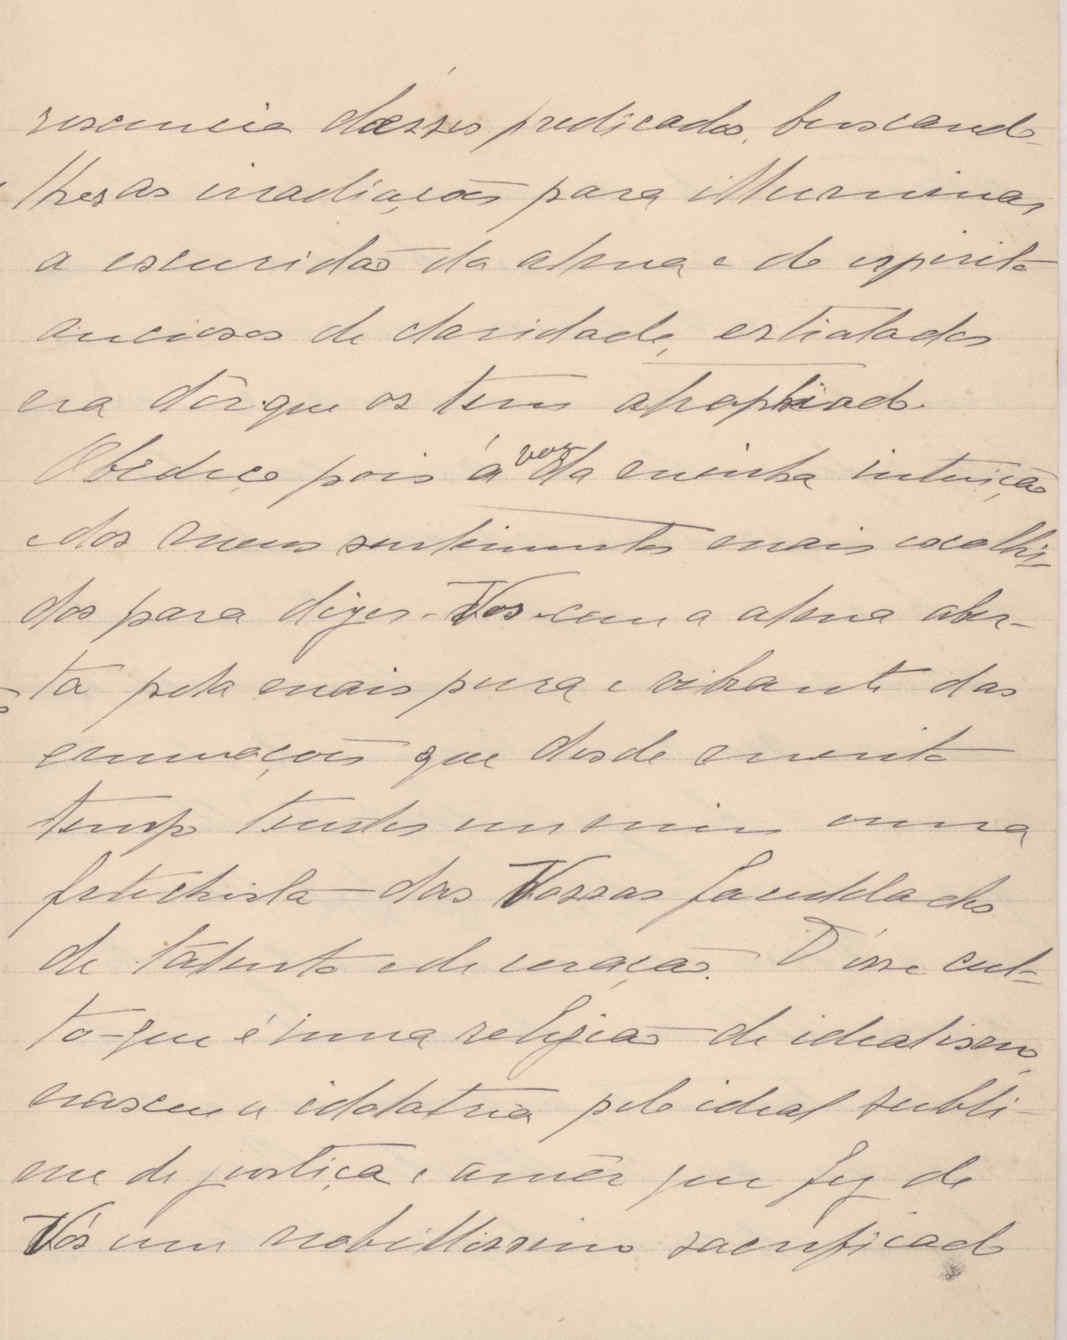 rescencia dessas predicados, buscando-
lhes as irradiações para illuminar
a escuridão da alma e do espirito
anciosos de claridade, estiolados
na dôr que os tem
Obedeço pois á voz da minha intuição
e dos meus sentimentos mais escolhi-
dos para dizer-Vos com a alma aber-
ta pela mais pura e vibrante das
emoções que desde muito
tempo tendes em mim uma
fetichista das Vossas faculdades
de talento e de coração. D'esse cul-
to que é uma religião de idealismo,
nasceu a idolatria pelo ideal subli-
me de justiça e amôr que fez de
Vós um nobillissimo sacrificado